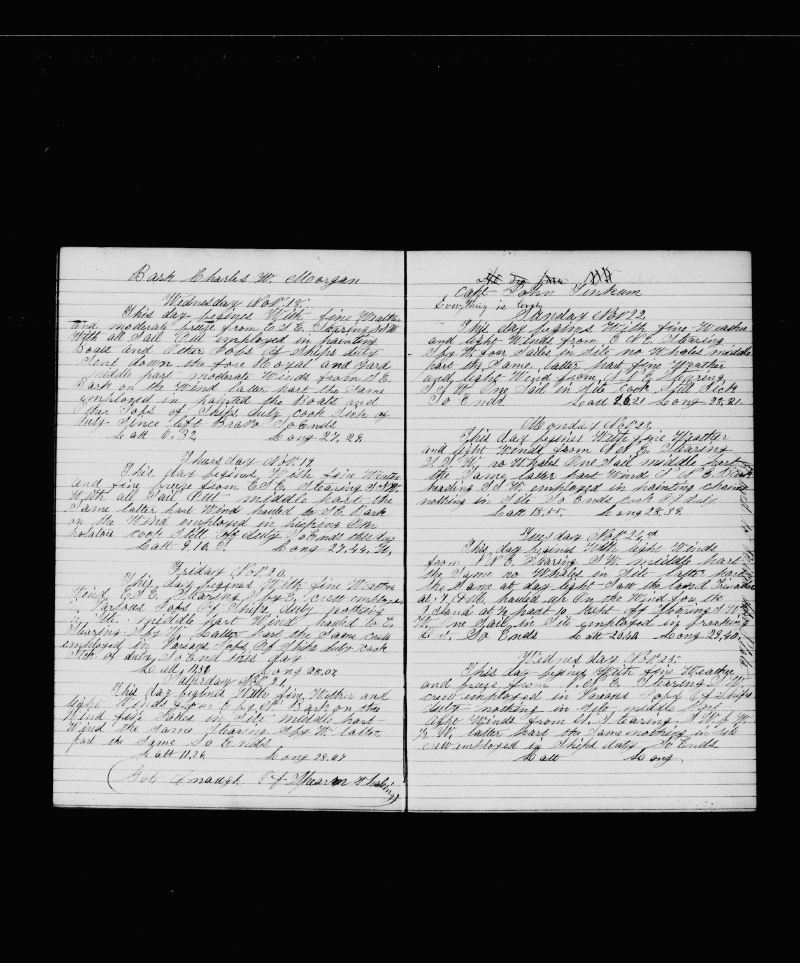 Bark Charles W. Morgan
Wednesday Nov. 18
This day begines With fine Weather
and moderate breeze from E.S.E. Stearing S.S.W.
With all Sail Out employed in painting
Boats and Other Jobs of Ships duty
Sent down the fore Royal and Yard
middle part moderate Winds from S.E.
Bark on the Wind latter part the Same
employed in painted the Boats and
Other Jobs of Ships duty cook Sick of
duty Since left Bravo So Ends
Latt 6.32 Long 27.29
Thursday Nov. 19
This day begines With fine Weather
and fine breeze from E.S.E. Stearing S.S.W.
With all Sail Out middle part the
Same latter part Wind hauled to S.E. Bark
on the Wind employed in
potatoes cook Still Off duty So Ends this day
Latt 9.10 Long 27.44
Friday Nov. 20
This day begines With fine Weather
Wind E.S.E. Stearing S by E. crew employed
in Various Jobs Of Ships duty nothing
in Site. middle part Wind hauled to E.
Stearing S by W. Latter part the Same crew
employed in Various Jobs Of Ships duty cook
Sick of duty So End this day
Latt Long 28.07
Saturday Nov. 21
This day begines With fine Wether and
light Winds from E by S. Bark on the
Wind five Sailes in Site middle part
Wind the Same Stearing S by W. latter
part the Same So Ends
Latt 11.28 Long 28.07
Job Enough Of Whaling
Capt John Tinkum
Everything is lovely
Sunday Nov 22
This day begines With fine Weather
and light Winds from E.N.E. Stearing
S by W. four Sailes in Site no Whales middle
part the Same. latter part fine Weather
and light Wind from N.E. Stearing
S by W. One Sail in Site Cook Still Sick
So Ends Latt 26.21 Long 28.21
Monday Nov 23
This day begines With fine Weather
and light Winds from N.E. Stearing
S.S.W. no Whales One Sail middle part
the Same latter part Wind Bark
heading S.S.W. employed in painting
nothing in Site So Ends cook Of duty
Latt 18.55 Long 28.38
Tuesday Nov 24
This day begines With light Winds
from N.E. Stearing S.W. middle part
the Same no Whales in Site latter part
the Same at day light Saw the land Trinadad
at 7 A.M. hauled up On the Wind for the
Island at ½ past 10 kept off Stearing S.W.
W. One Sail in Site employed in breaking
So Ends Latt 20.40 Long 29.40
Wednesday Nov 25
This day begines With fine Weather
and breeze from N.E. Stearing S.W.
crew employed in Various Jobs of Ships
duty nothing in Site. middle part
light Winds from N. Stearing S.W. by W.
½ W. latter part the Same nothing in Site
crew employed in Ships duty So Ends
Latt Long